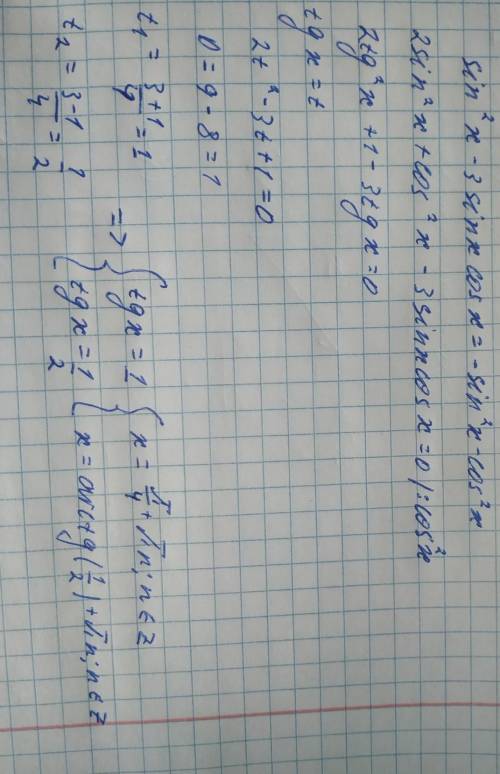 sin²x - 3 sinx cosx = -sin²x - cos²x
2sin²x + cos²x - 3 sinx cosx = 0 |: cos²x
2tg²x + 1 - 3tgx = 0
tgx = t
2t² - 3t + 1 = 0
D = 9 - 8 = 1
t₁ = (3+1)/4 = 1
t₂ = (3-1)/4 = 1/2
=> { tgx = 1 { x = π/4 + πn; n ∈ z
{ tgx = 1/2 { x = arctg(1/2) + πn; n ∈ z